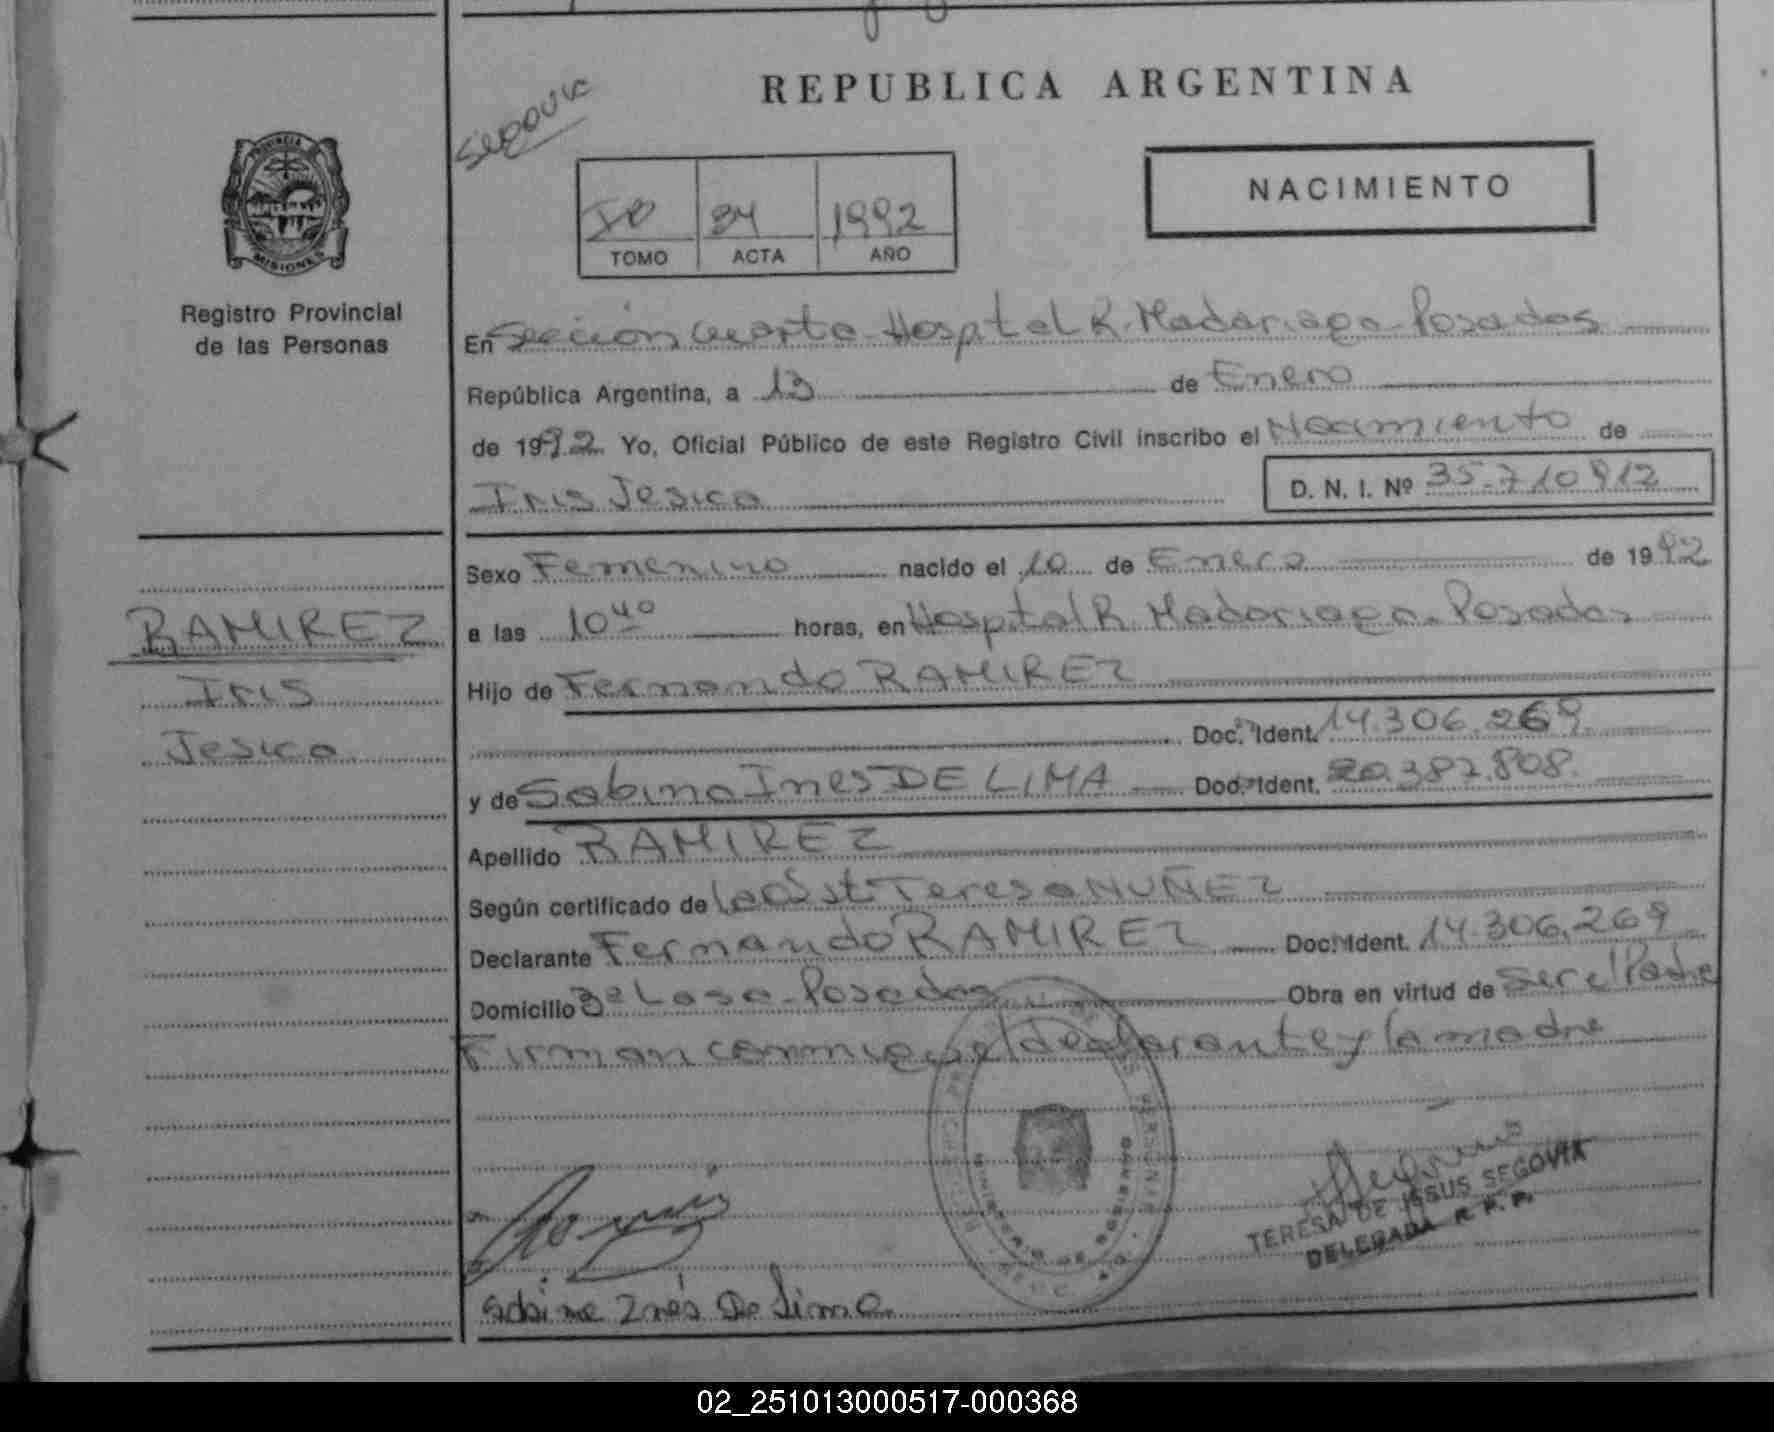 REPUBLICA ARGENTINA
SEGOVIA
PROVINCIA
MISIONES
Registro Provincial
de las Personas
34 1992
TOMO ACTA AÑO
NACIMIENTO
En Sección cuarta - Hospital R. Madariaga - Posadas
República Argentina, a 13 de Enero
de 1992 Yo, Oficial Público de este Registro Civil inscribo el Nacimiento de
Iris Jesica D. N. I. Nº 35.710912
Sexo Femenino nacido el 10 de Enero de 1992
RAMIREZ
Iris
Jesica
a las 10 40 horas, en Hospital R. Madariaga - Posadas
Hijo de Fernando RAMIREZ
Doc. Ident. 14.306.269
y de Sabina Ines DE LIMA Doc. Ident. 20.387.808.
Apellido RAMIREZ
Según certificado de la Obst Teresa NUÑEZ
Declarante Fernando RAMIREZ Doc. Ident. 14.306.269
Domicilio Posadas Obra en virtud de ser el Padre
Firman conmigo el declarante y la madre
MINISTERIO DE GOBIERNO
TERESA DE JESUS SEGOVIA
DELEGADA R. P. P.
Sabina Inés De Lima
02_251013000517-000368